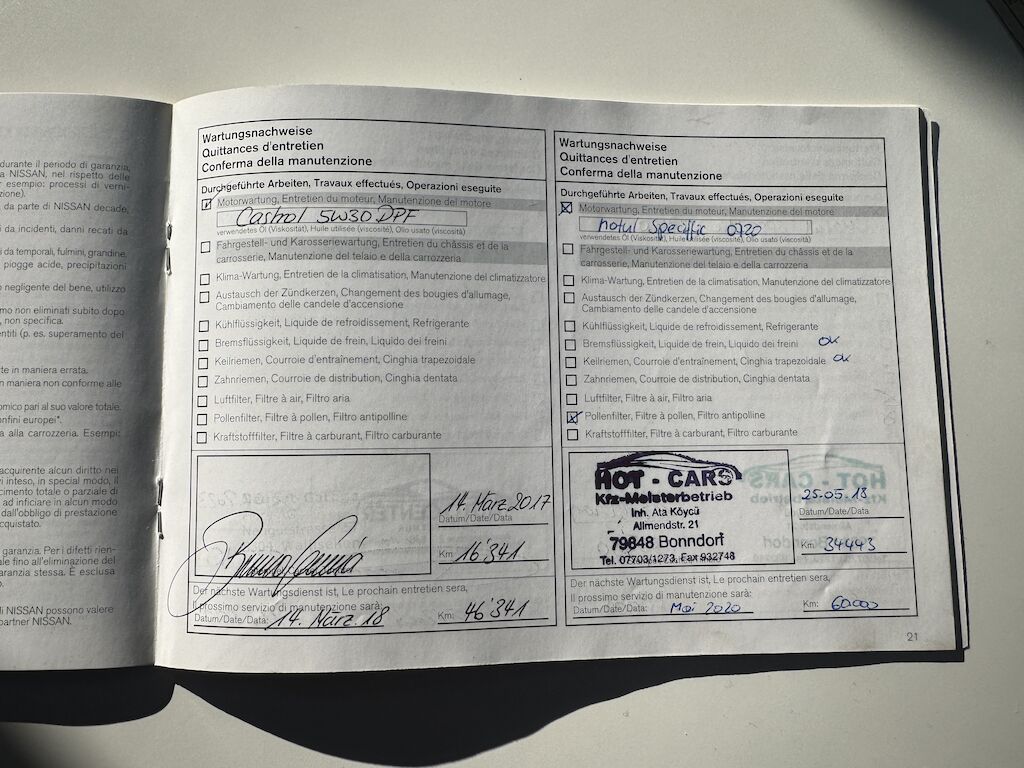 durante il periodo di garanzia,
a NISSAN, nel rispetto delle
r esempio: processi di verni-
zione).
da parte di NISSAN decade,
i da incidenti, danni recati da
da temporali, fulmini, grandine.
piogge acide, precipitazioni
negligente del bene, utilizzo
mo non eliminati subito dopo
, non specifica.
entiti (p. es. superamento del
te in maniera errata.
n maniera non conforme alle
omico pari al suo valore totale.
onfini europei*.
a alla carrozzeria. Esempi:
acquirente alcun diritto nei
vi inteso, in special modo, il
cimento totale o parziale di
ad inficiare in alcun modo
dall'obbligo di prestazione
cquistato.
garanzia. Per i difetti rien-
ale fino all'eliminazione del
aranzia stessa. È esclusa
o.
li NISSAN possono valere
partner NISSAN.
Wartungsnachweise
Quittances d'entretien
Conferma della manutenzione
Durchgeführte Arbeiten, Travaux effectués, Operazioni eseguite
Motorwartung, Entretien du moteur, Manutenzione del motore
Castrol 5W30 DPF
verwendetes Öl (Viskosität), Huile utilisée (viscosité), Olio usato (viscosità)
Fahrgestell- und Karosseriewartung, Entretien du châssis et de la
carrosserie, Manutenzione del telaio e della carrozzeria
Klima-Wartung, Entretien de la climatisation, Manutenzione del climatizzatore
Austausch der Zündkerzen, Changement des bougies d'allumage,
Cambiamento delle candele d'accensione
Kühlflüssigkeit, Liquide de refroidissement, Refrigerante
Bremsflüssigkeit, Liquide de frein, Liquido dei freini
Keilriemen, Courroie d'entraînement, Cinghia trapezoidale
Zahnriemen, Courroie de distribution, Cinghia dentata
Luftfilter, Filtre à air, Filtro aria
Pollenfilter, Filtre à pollen, Filtro antipolline
Kraftstofffilter, Filtre à carburant, Filtro carburante
14. März 2017
Datum/Date/Data
Km: 16'341
Der nächste Wartungsdienst ist, Le prochain entretien sera,
Il prossimo servizio di manutenzione sarà:
Datum/Date/Data: 14. März. 18 Km: 46'341
Wartungsnachweise
Quittances d'entretien
Conferma della manutenzione
Durchgeführte Arbeiten, Travaux effectués, Operazioni eseguite
Motorwartung, Entretien du moteur, Manutenzione del motore
Motul Speciffic 0720
verwendetes Öl (Viskosität), Huile utilisée (viscosité), Olio usato (viscosità)
Fahrgestell- und Karosseriewartung, Entretien du châssis et de la
carrosserie, Manutenzione del telaio e della carrozzeria
Klima-Wartung, Entretien de la climatisation, Manutenzione del climatizzatore
Austausch der Zündkerzen, Changement des bougies d'allumage,
Cambiamento delle candele d'accensione
Kühlflüssigkeit, Liquide de refroidissement, Refrigerante
Bremsflüssigkeit, Liquide de frein, Liquido dei freini ok
Keilriemen, Courroie d'entraînement, Cinghia trapezoidale ok
Zahnriemen, Courroie de distribution, Cinghia dentata
Luftfilter, Filtre à air, Filtro aria
Pollenfilter, Filtre à pollen, Filtro antipolline
Kraftstofffilter, Filtre à carburant, Filtro carburante
HOT - CARS
Kfz-Meisterbetrieb
Inh. Ata Köycü
Allmendstr. 21
79848 Bonndorf
Tel. 07703/1273, Fax 932748
25.05.18
Datum/Date/Data
Km: 34443
Der nächste Wartungsdienst ist, Le prochain entretien sera,
Il prossimo servizio di manutenzione sarà:
Datum/Date/Data: Mai 2020 Km: 60000
21